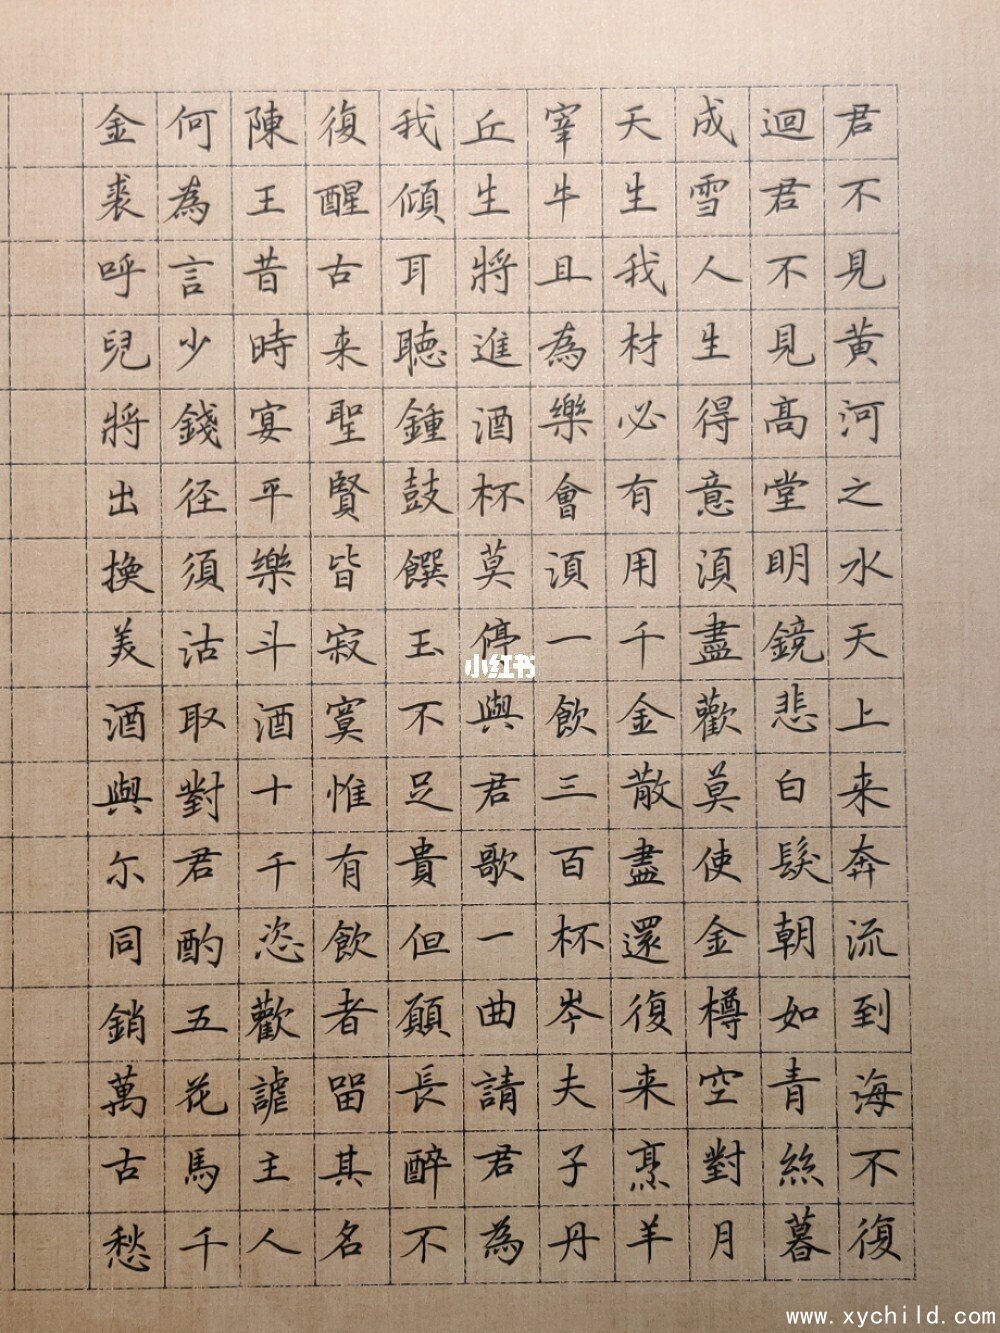 君不見黄河之水天上来奔流到海不復
迴君不見高堂明鏡悲白髮朝如青絲暮
成雪人生得意湏盡歡莫使金樽空對月
天生我材必有用千金散盡還復来烹羊
宰牛且為樂會湏一飲三百杯岑夫子丹
丘生將進酒杯莫停與君歌一曲請君為
我傾耳聽鍾鼓饌玉不足貴但願長醉不
復醒古来聖賢皆寂寞惟有飲者留其名
陳王昔時宴平樂斗酒十千恣歡謔主人
何為言少錢径須沽取對君酌五花馬千
金裘呼兒將出換美酒與尔同銷萬古愁
小红书
www.xychild.com